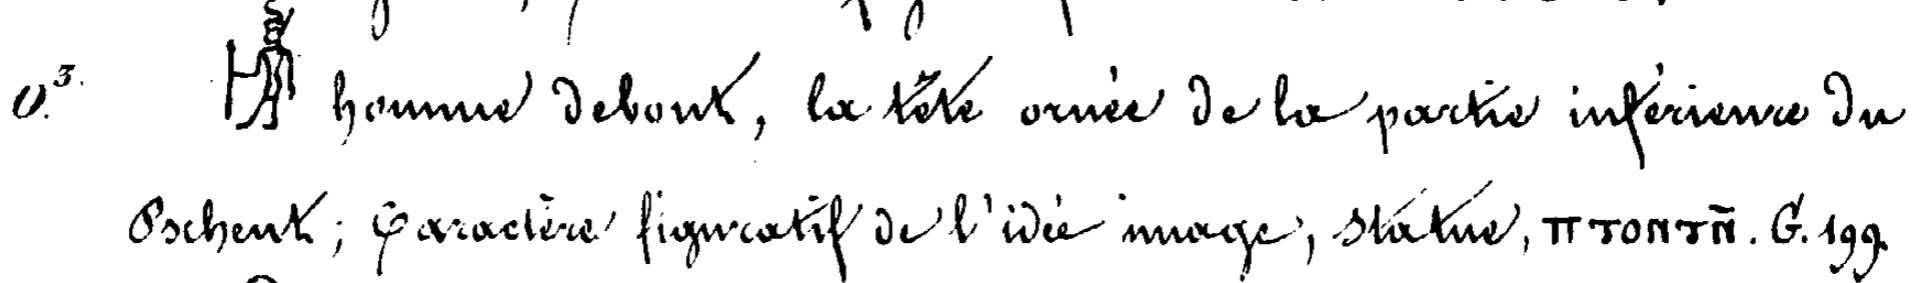 v.3. 𓀾 homme debout, la tête ornée de la partie inférieure du
Pschent; Caractère figuratif de l'idée image, statue, ⲡⲧⲟⲛⲧⲛ̄. G. 199.